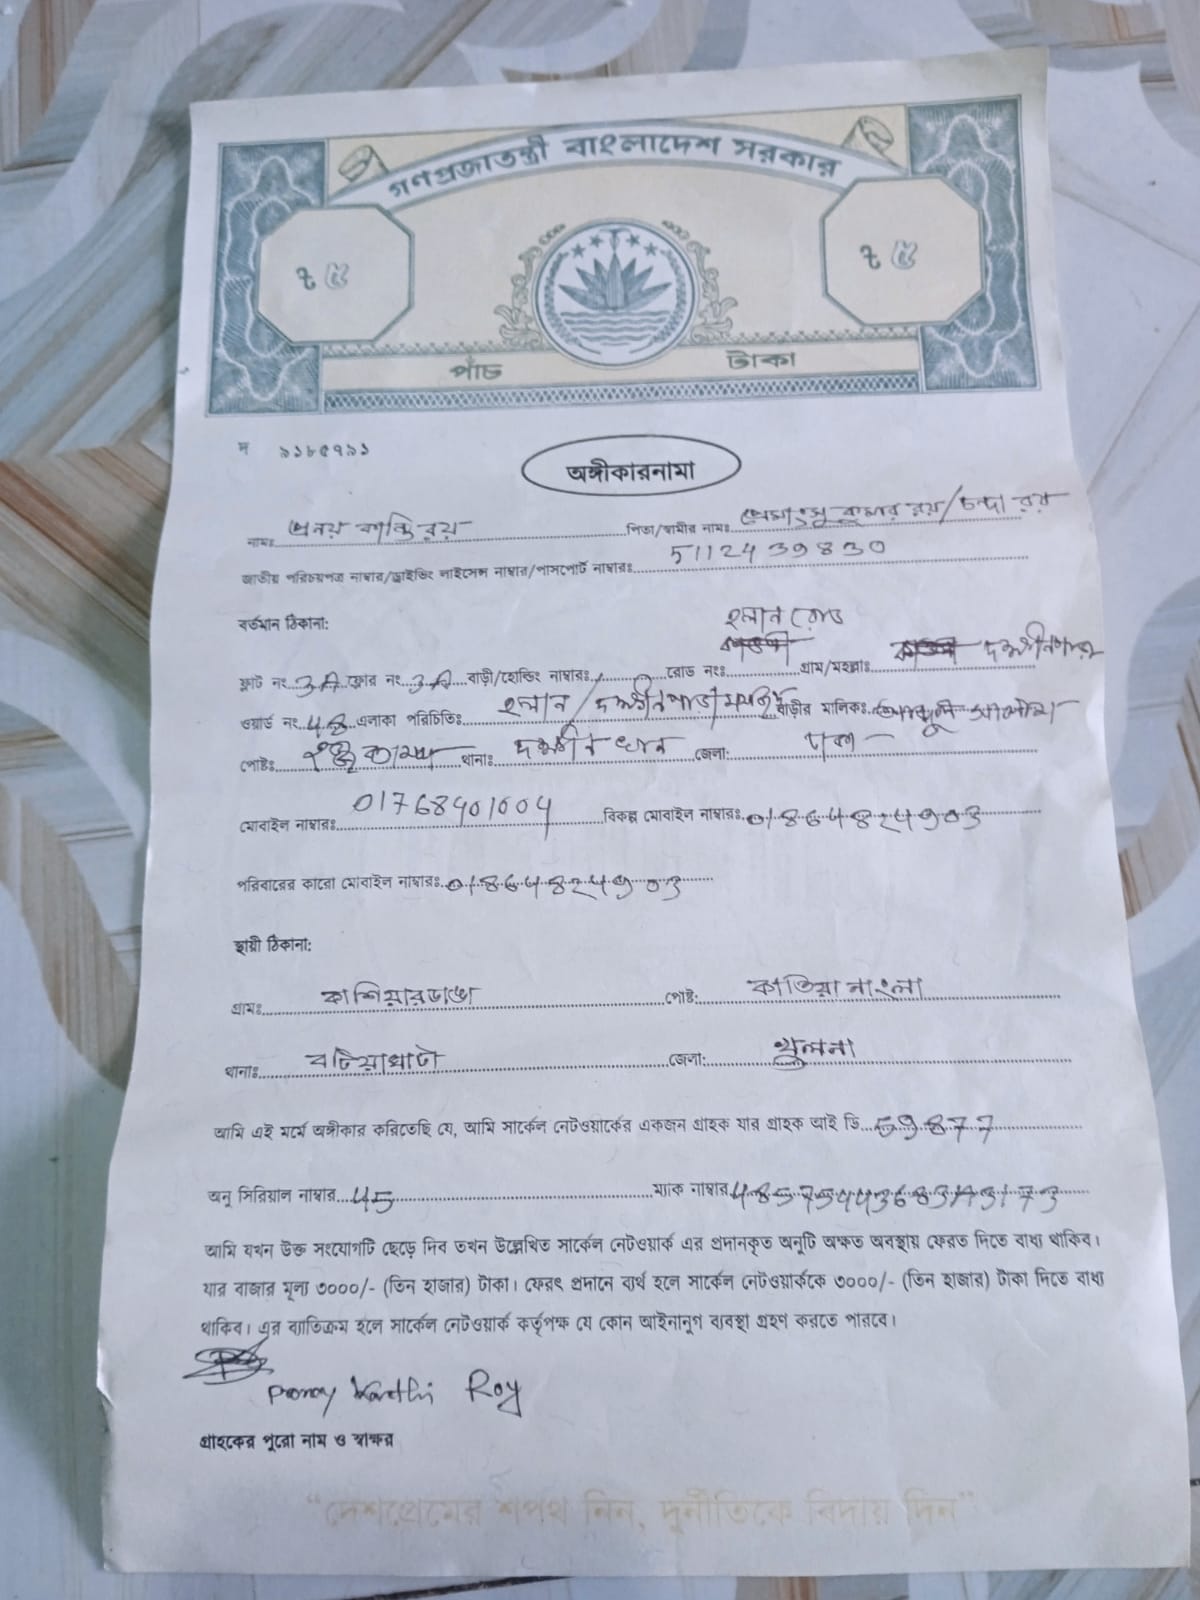 গণপ্রজাতন্ত্রী বাংলাদেশ সরকার
ট ৫ ট ৫
পাঁচ টাকা
দ ৯১৮৫৭৯১
অঙ্গীকারনামা
নামঃ প্রনয় কান্তি রয় পিতা/স্বামীর নামঃ কুমার রয়/চন্দা রয়
জাতীয় পরিচয়পত্র নাম্বার/ড্রাইভিং লাইসেন্স নাম্বার/পাসপোর্ট নাম্বারঃ 5112439830
বর্তমান ঠিকানা:
হলান রোড
ফ্লাট নং 3A ফ্লোর নং 3A বাড়ী/হোল্ডিং নাম্বারঃ রোড নংঃ গ্রাম/মহল্লাঃ
ওয়ার্ড নং 48 এলাকা পরিচিতিঃ হলান/ বাড়ীর মালিকঃ
পোষ্টঃ থানাঃ দক্ষীন খান জেলা: ঢাকা
মোবাইল নাম্বারঃ 01768901004 বিকল্প মোবাইল নাম্বারঃ 01864824903
পরিবারের কারো মোবাইল নাম্বারঃ 01864824903
স্থায়ী ঠিকানা:
গ্রামঃ কাশিয়ারডাঙা পোষ্ট: কাতিয়া নাংলা
থানাঃ বটিয়াঘাটা জেলা: খুলনা
আমি এই মর্মে অঙ্গীকার করিতেছি যে, আমি সার্কেল নেটওয়ার্কের একজন গ্রাহক যার গ্রাহক আই ডি 59877
অনু সিরিয়াল নাম্বার 45 ম্যাক নাম্বার 48575443683A3173
আমি যখন উক্ত সংযোগটি ছেড়ে দিব তখন উল্লেখিত সার্কেল নেটওয়ার্ক এর প্রদানকৃত অনুটি অক্ষত অবস্থায় ফেরত দিতে বাধ্য থাকিব।
যার বাজার মূল্য ৩০০০/- (তিন হাজার) টাকা। ফেরৎ প্রদানে ব্যর্থ হলে সার্কেল নেটওয়ার্ককে ৩০০০/- (তিন হাজার) টাকা দিতে বাধ্য
থাকিব। এর ব্যাতিক্রম হলে সার্কেল নেটওয়ার্ক কর্তৃপক্ষ যে কোন আইনানুগ ব্যবস্থা গ্রহণ করতে পারবে।
Pronoy Kanthi Roy
গ্রাহকের পুরো নাম ও স্বাক্ষর
“দেশপ্রেমের শপথ নিন, দুর্নীতিকে বিদায় দিন”